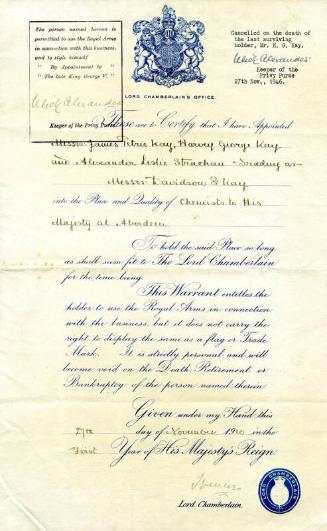 The person named hereon is
permitted to use the Royal Arms
in connection with his business,
and to style himself
" By Appointment to "
" The late King George V. "
Ulick Alexander
Keeper of the Privy Purse
LORD CHAMBERLAIN'S OFFICE.
Cancelled on the death of
the last surviving
holder, Mr. H. G. Kay.
Ulick Alexander
Keeper of the
Privy Purse
27th Nov., 1946.
These are to Certify that I have Appointed
Messrs James Petrie Kay, Harvey George Kay
and Alexander Leslie Strachan - Trading as -
Messrs Davidson & Kay
into the Place and Quality of Chemists to His
Majesty at Aberdeen
To hold the said Place so long
as shall seem fit to The Lord Chamberlain
for the time being.
This Warrant entitles the
holder to use the Royal Arms in connection
with the business, but it does not carry the
right to display the same as a flag or Trade
Mark. It is strictly personal and will
become void on the Death, Retirement or
Bankruptcy of the person named therein.
Given under my Hand this
day of November 1910 in the
First Year of His Majesty's Reign.
Spencer
Lord Chamberlain.
LORD CHAMBERLAIN